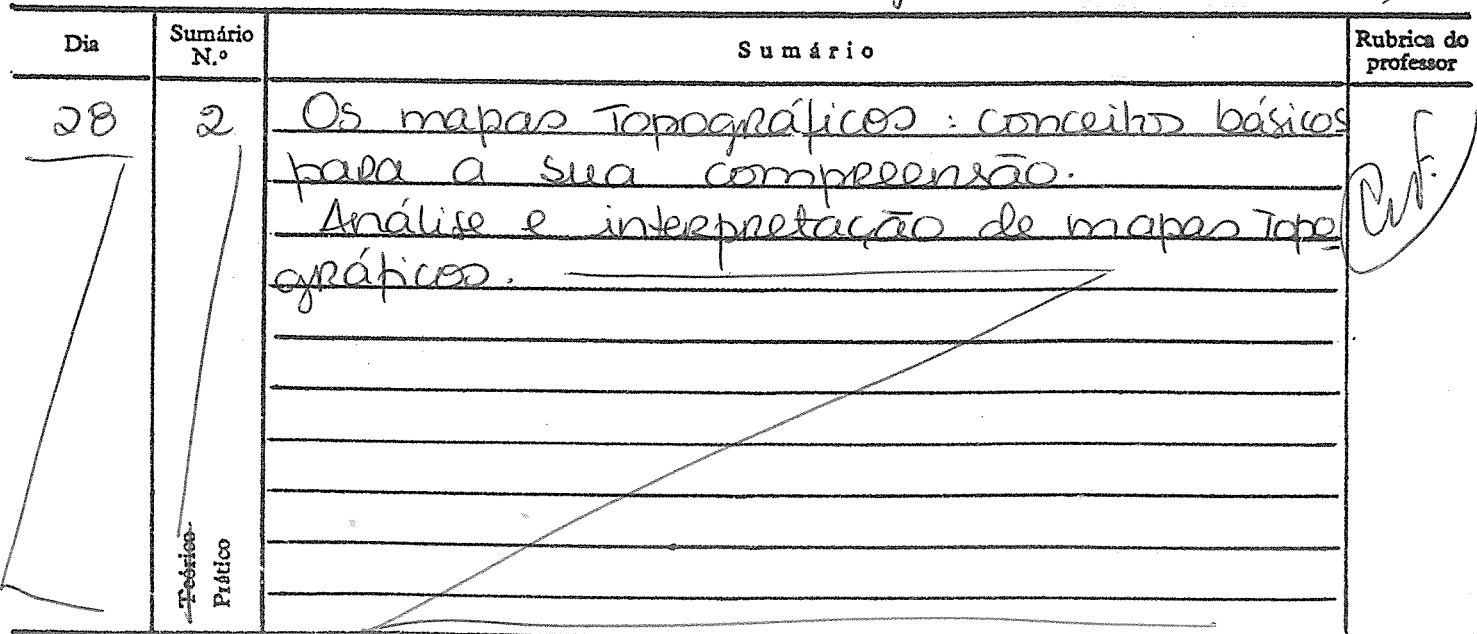 Dia
Sumário N.º
Sumário
Rubrica do professor
28
2
Os mapas Topográficos: conceitos básicos
para a sua compreensão.
Análise e interpretação de mapas Topo
gráficos.
Teórico
Prático